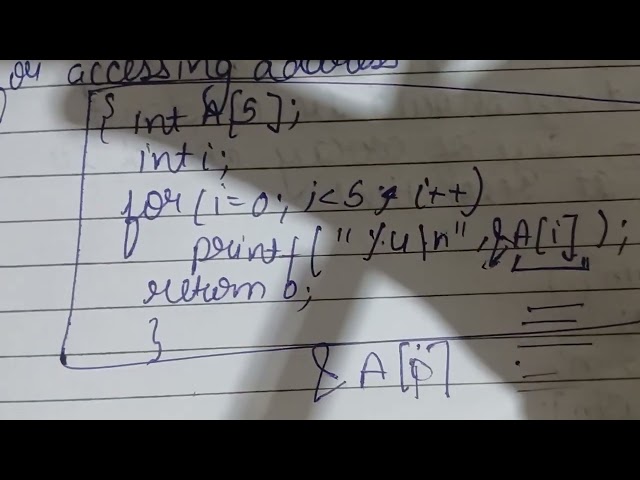 or accessing address
{ int A[5];
int i;
for(i=0; i<5; i++)
printf("%u\n", &A[i]);
return 0;
}
&A[i]